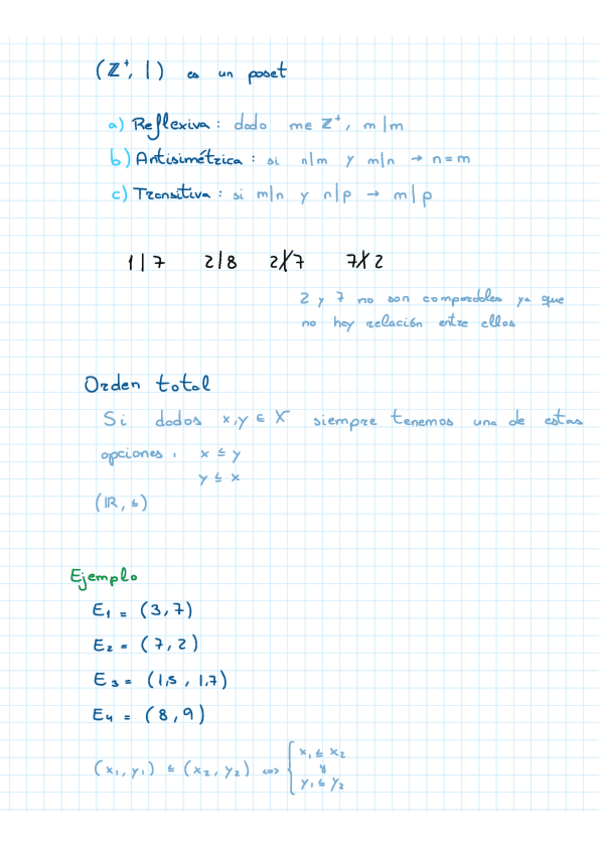 (ℤ⁺, |) es un poset
a) Reflexiva: dado m∈ℤ⁺, m|m
b) Antisimétrica: si n|m y m|n → n=m
c) Transitiva: si m|n y n|p → m|p
1|7 2|8 2∤7 7∤2
2 y 7 no son comparables ya que
no hay relación entre ellos
Orden total
Si dados x,y ∈ X siempre tenemos una de estas
opciones: x ≤ y
y ≤ x
(ℝ, ≤)
Ejemplo
E₁ = (3,7)
E₂ = (7,2)
E₃ = (1,5 , 1,7)
E₄ = (8,9)
(x₁,y₁) ≤ (x₂,y₂) ⇔ { x₁ ≤ x₂
y
y₁ ≤ y₂